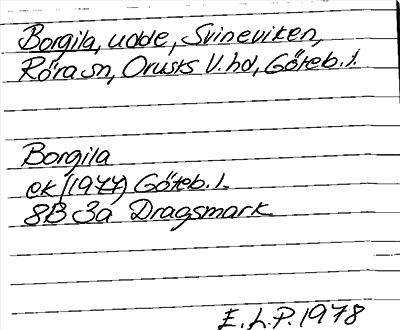 Borgila, udde, Svineviken,
Röra sn, Orusts V. hd, Göteb. l.
Borgila
ek (1977) Göteb. l.
8B 3a Dragsmark
E. L. P. 1978